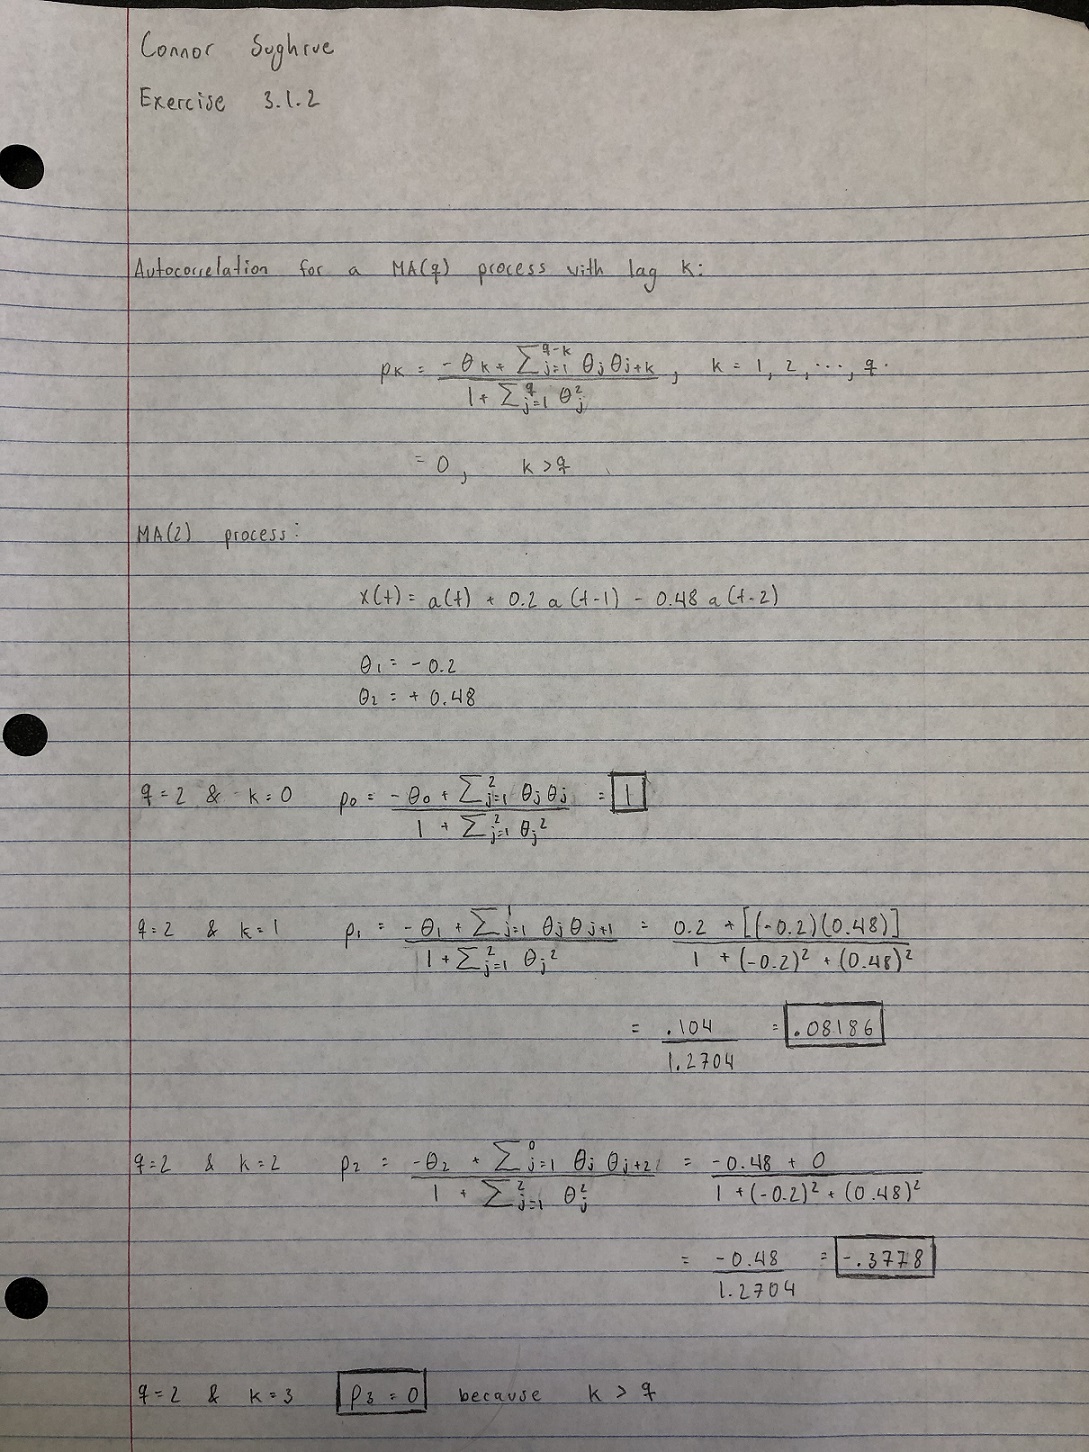 Connor Sughrue
Exercise 3.1.2
Autocorrelation for a MA(q) process with lag k:
ρk = (-θk + Σ_{j=1}^{q-k} θj θj+k) / (1 + Σ_{j=1}^{q} θj²), k = 1, 2, ..., q.
= 0, k > q
MA(2) process:
x(t) = a(t) + 0.2 a (t-1) - 0.48 a (t-2)
θ1 = -0.2
θ2 = + 0.48
q = 2 & k = 0 ρ0 = (-θ0 + Σ_{j=1}^{2} θj θj) / (1 + Σ_{j=1}^{2} θj²) = 1
q = 2 & k = 1 ρ1 = (-θ1 + Σ_{j=1}^{1} θj θj+1) / (1 + Σ_{j=1}^{2} θj²) = (0.2 + [(-0.2)(0.48)]) / (1 + (-0.2)² + (0.48)²)
= .104 / 1.2704 = .08186
q = 2 & k = 2 ρ2 = (-θ2 + Σ_{j=1}^{0} θj θj+2) / (1 + Σ_{j=1}^{2} θj²) = (-0.48 + 0) / (1 + (-0.2)² + (0.48)²)
= -0.48 / 1.2704 = -.3778
q = 2 & k = 3 ρ3 = 0 because k > q